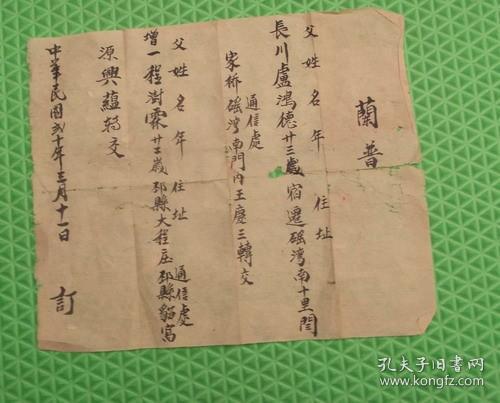 蘭普
父姓名年住址
長川盧鴻德廿三歲宿遷磘灣南十里閆
家桥通信處磘灣南門內王慶三轉交
父姓名年住址
增一程澍霖廿二歲邳縣大程庄通信處邳縣貓窩
源興蕴轉交
中華民國弍十年三月十一日 訂
孔夫子旧书网
www.kongfz.com